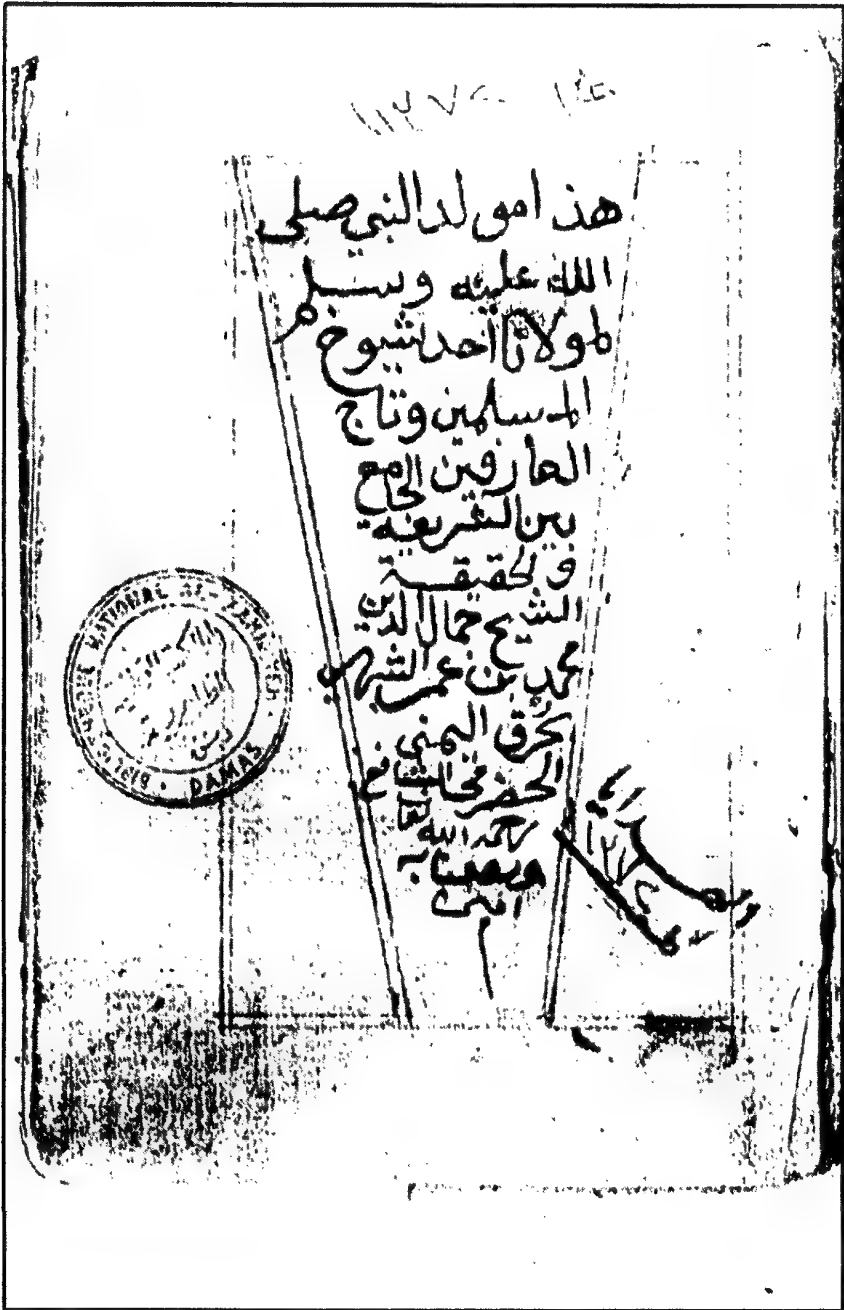 هذا مولد النبي صلى
الله عليه وسلم
لمولانا أحد شيوخ
المسلمين وتاج
العارفين الجامع
بين الشريعة
والحقيقة
الشيخ جمال الدين
محمد بن عمر الشهير
بحرق اليمني
الحضرمي الشافعي
رحمه الله تعالى
ونفعنا به
امين
BIBLIOTHEQUE NATIONAL AL-ZAHIRIYEH
DAMAS